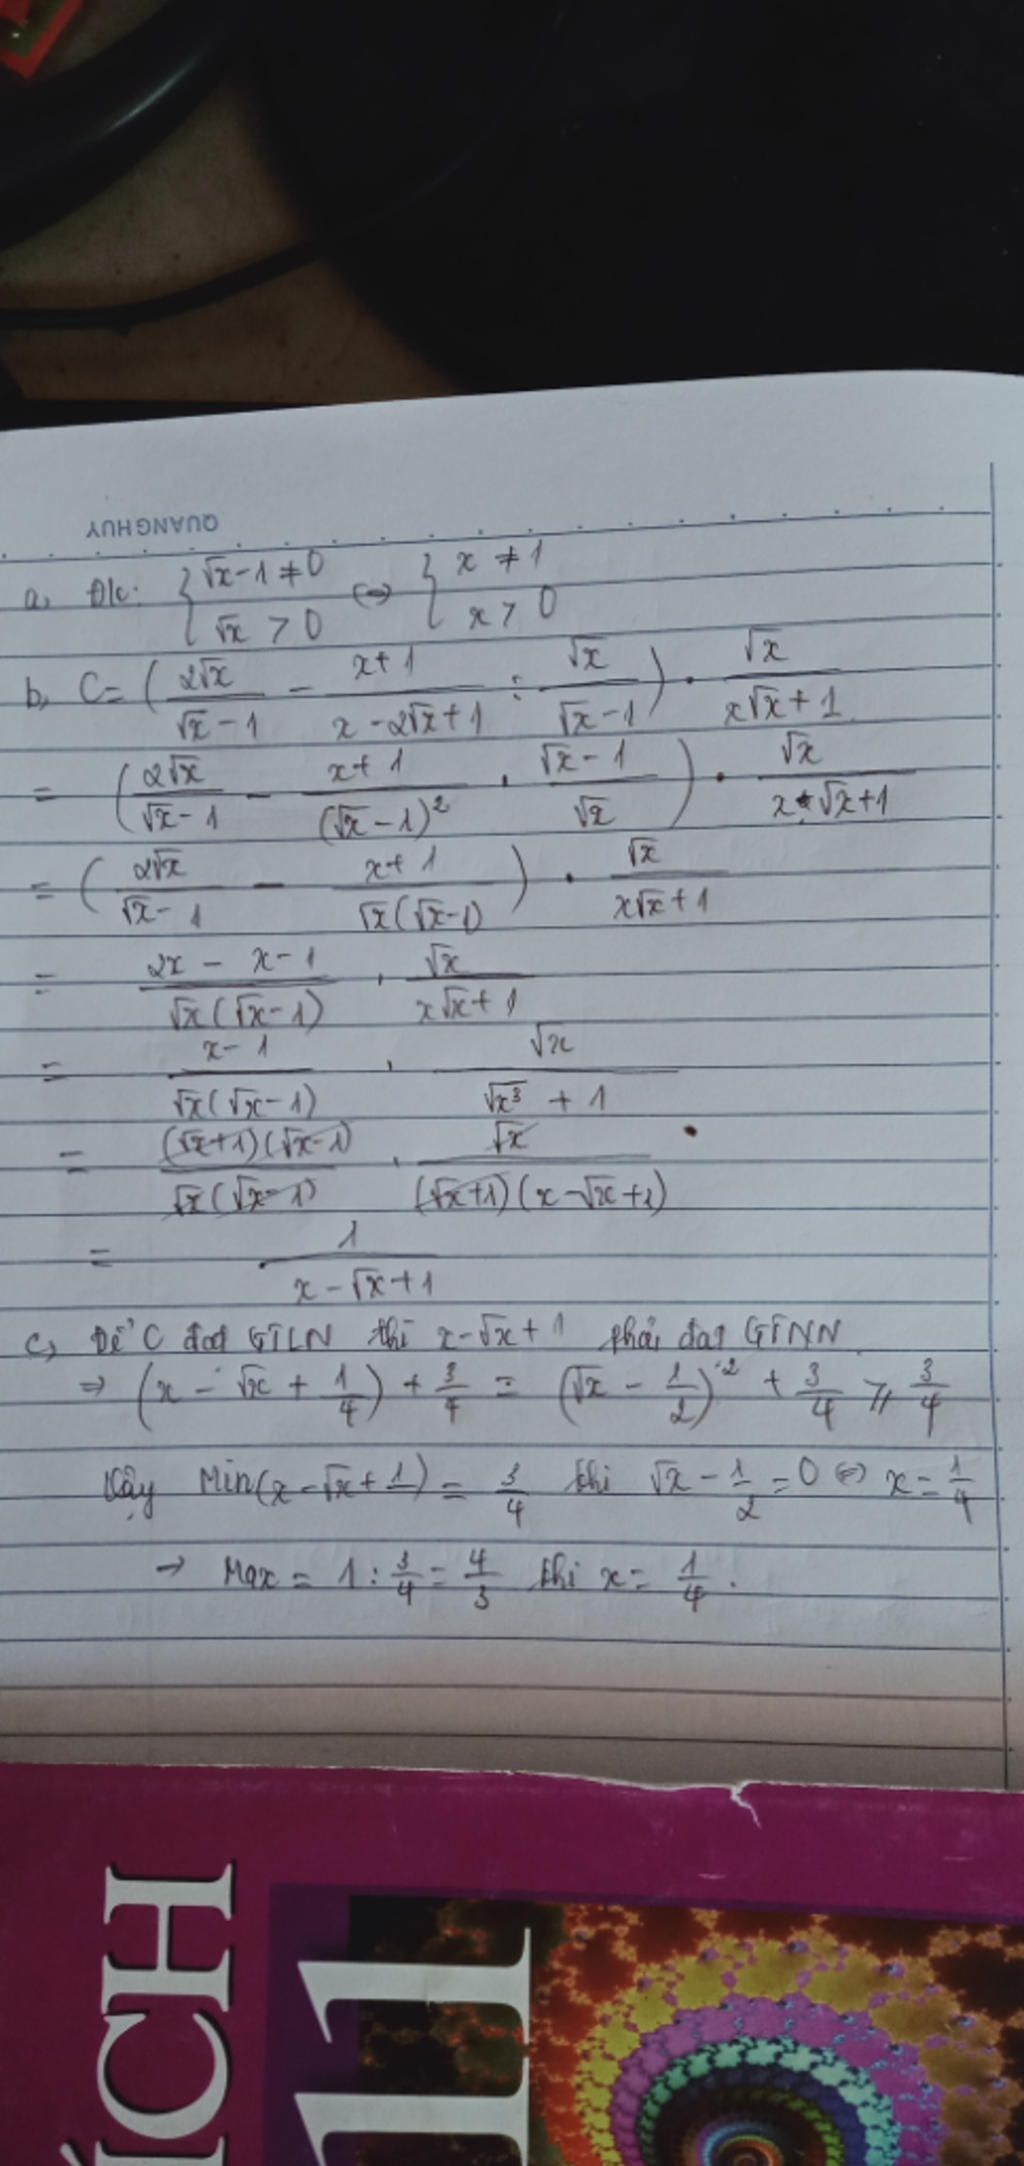 QUANGHUY
a, Đk: { √x - 1 ≠ 0 ⇔ { x ≠ 1
√x > 0 x > 0
b, C = ( 2√x / (√x - 1) - (x + 1) / (x - 2√x + 1) : √x / (√x - 1) ) . √x / (x√x + 1)
= ( 2√x / (√x - 1) - (x + 1) / (√x - 1)² . (√x - 1) / √x ) . √x / (x√x + 1)
= ( 2√x / (√x - 1) - (x + 1) / √x(√x - 1) ) . √x / (x√x + 1)
= (2x - x - 1) / √x(√x - 1) . √x / (x√x + 1)
= (x - 1) / √x(√x - 1) . √x / (√x³ + 1)
= (√x + 1)(√x - 1) / √x(√x - 1) . √x / (√x + 1)(x - √x + 1)
= 1 / (x - √x + 1)
c, Để C đạt GTLN thì x - √x + 1 phải đạt GTNN
⇒ (x - √x + 1/4) + 3/4 = (√x - 1/2)² + 3/4 ≥ 3/4
Vậy Min(x - √x + 1) = 3/4 khi √x - 1/2 = 0 ⇔ x = 1/4
→ Max = 1 : 3/4 = 4/3 khi x = 1/4 .
ÍCH
11